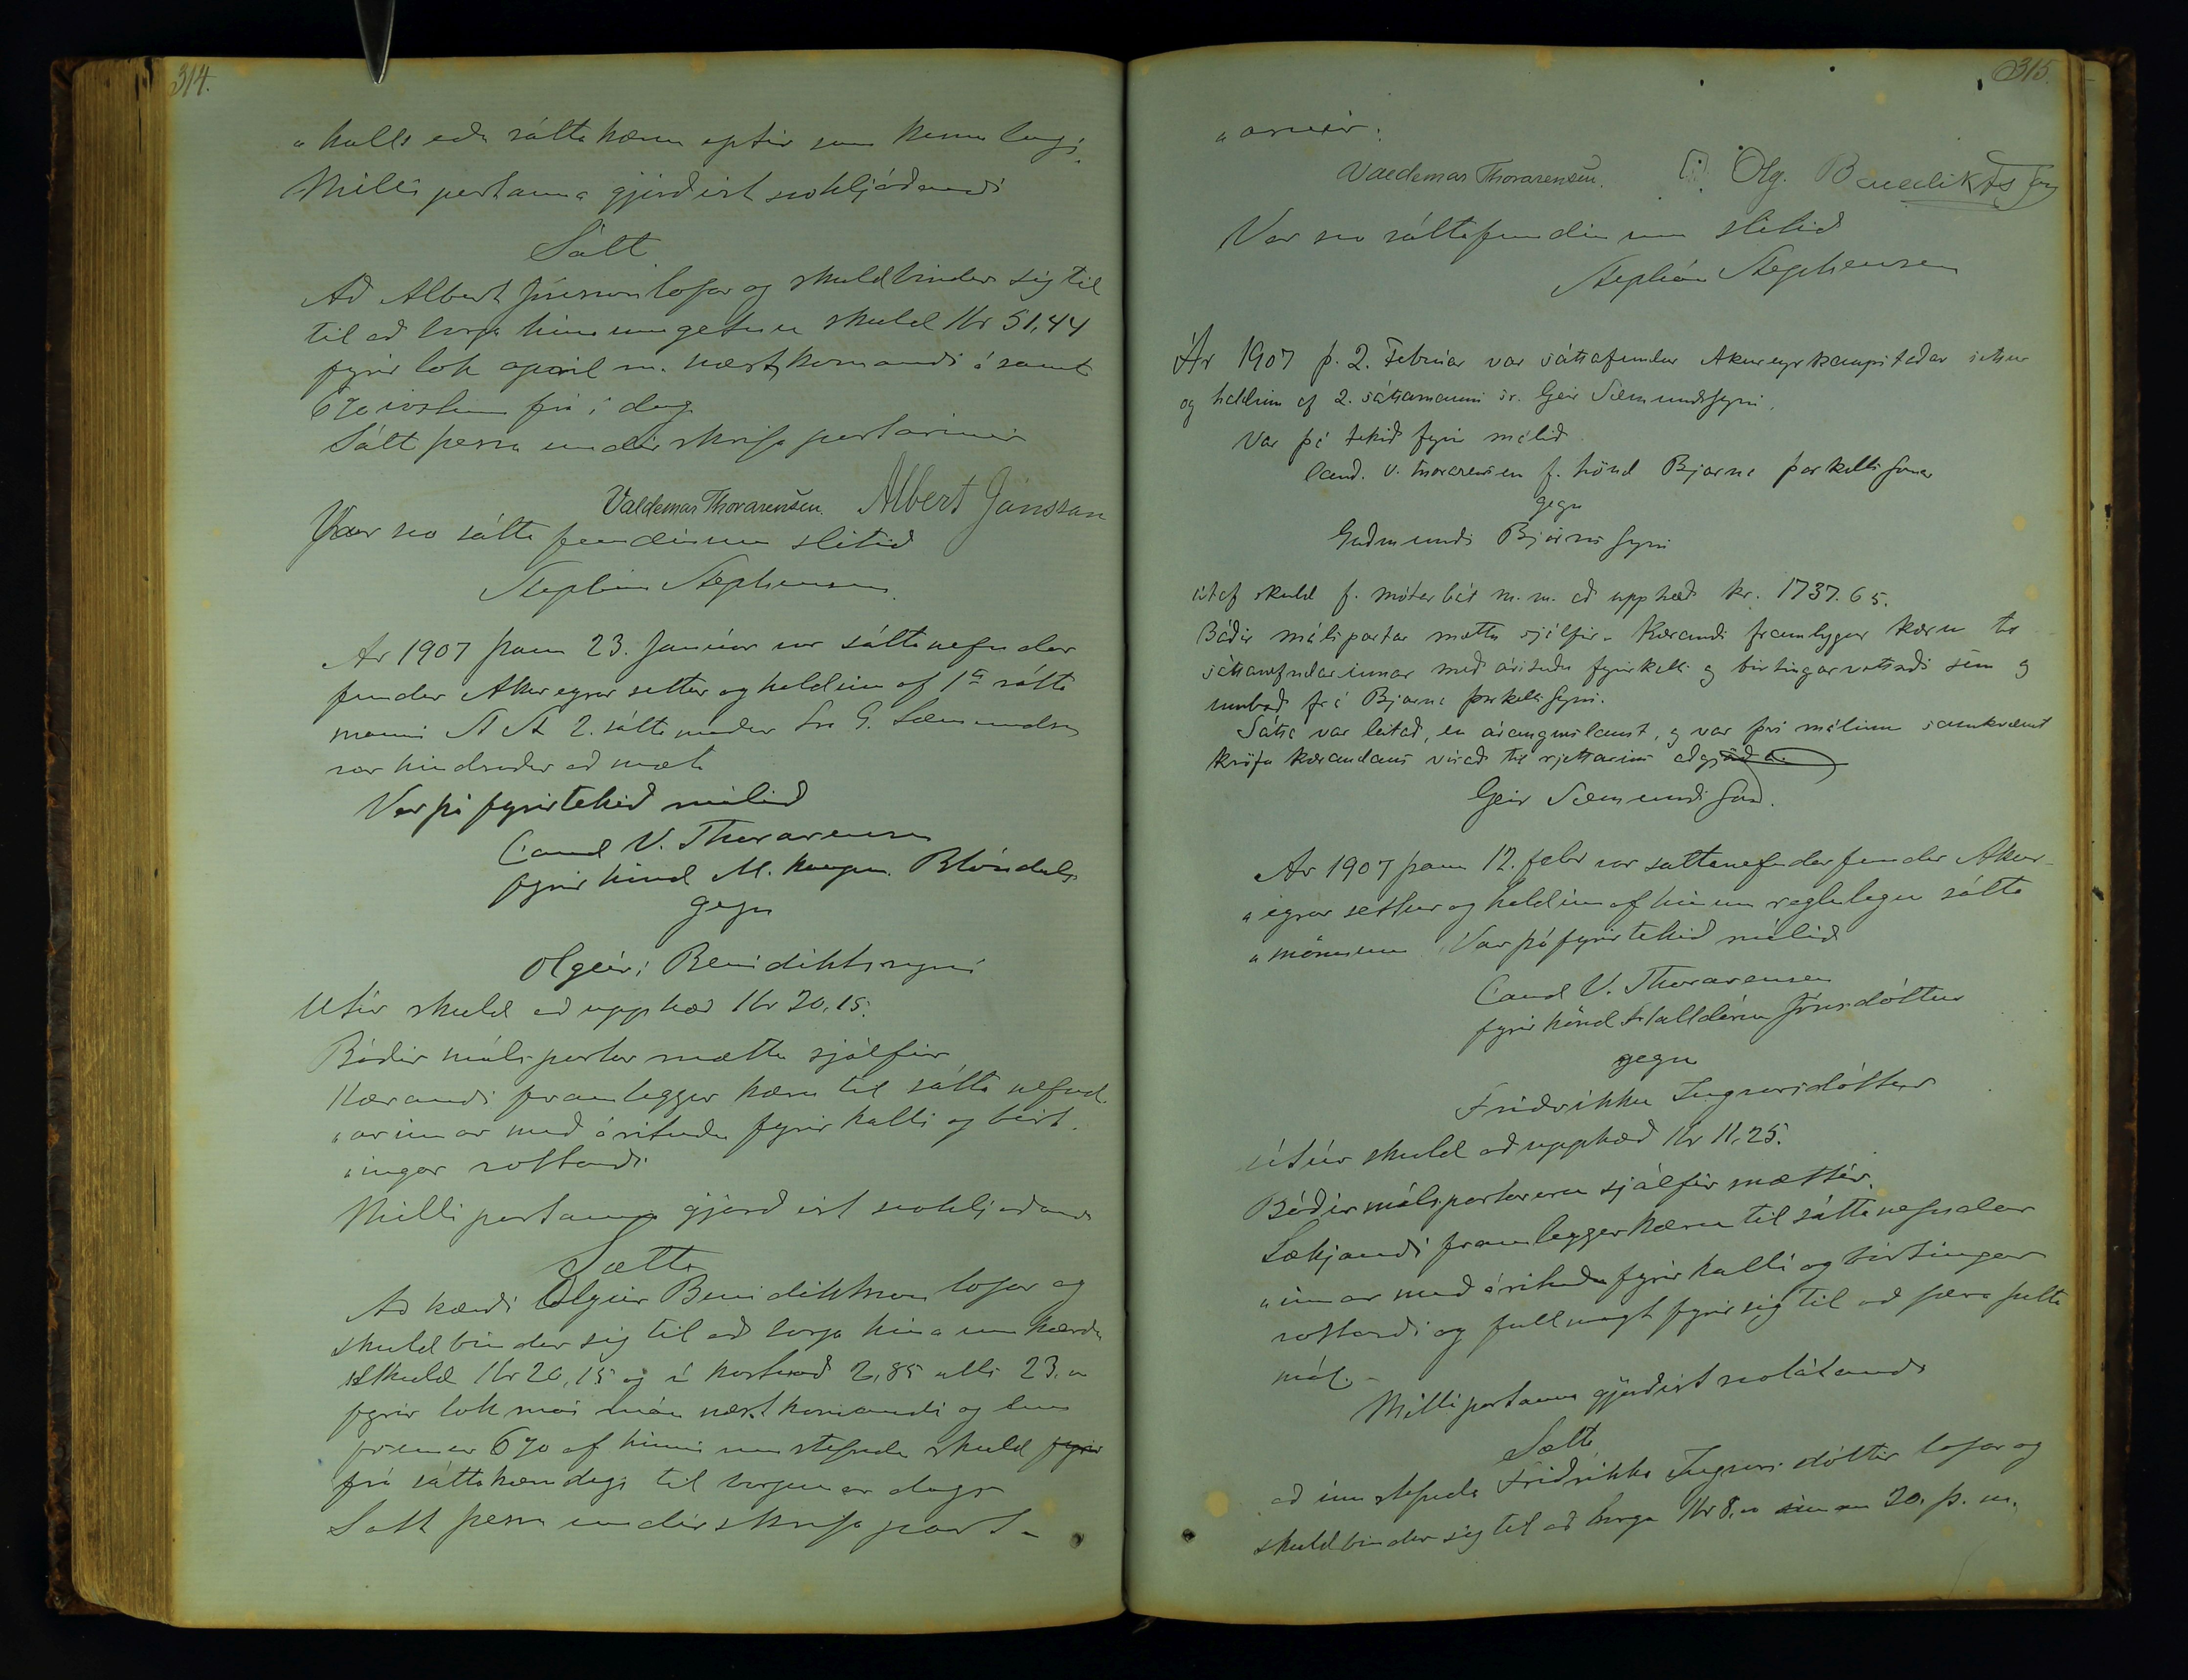 314.
„kalls eða sáttakæru eptir sem kemur
Milli partanna gjörðist svohljóðandi
Sátt
Að Albert Jónsson lofar og skuldbindur sig til
til að borga hina umgetnu skuld Kr 51,44
fyrir lok apríl m. næstkomandi ásamt
6% vöxtum frá í dag
Sátt þessa undirskrifa partarnir
Valdemar Thorarensen. Albert Jónsson
Var svo sáttafundinum slitið
Stephán Stephensen.
Ár 1907 þann 23. Janúar var sáttanefndar
fundur Akureyrar settur og haldinn af 1a sátta
manni St St 2. sáttamaður Sra G. Sæmundsson
var hindraður að mæta
Var þá fyrirtekið málið
Cand V. Thorarensen
fyrir hönd M. kaupm. Blöndals
gegn
Olgeiri Benidiktssyni
Útúr skuld að upphæð Kr 20,15.
Báðir málspartar mættu sjálfir
Kærandi framleggur kæru til sáttanefnd
„arinnar með árituðu fyrirkalli og birt.
„ingar vottorði
Milli partanna gjörðist svohljóðandi
Sætt
Að kærði Olgeir Benidiktsson lofar og
skuldbindur sig til að borga hina umkærðu
skuld Kr 20,15 og í kostnað 2,85 alls 23,00
fyrir lok maí mán næstkomandi og
6% af hinni umstefndu skuld fyrir
frá sáttakærudegi til borgunar dags
Sátt þessa undirskrifa part-
315.
„arnir.
Valdemar Thorarensen. Olg. Benediktsson
Var svo sáttafundinum slitið
Stephán Stephensen
Ár 1907 þ. 2. Febrúar var sáttafundur Akureyrkaupstaðar settur
og haldinn af 2. sáttamanni sr. Geir Sæmundssyni.
Var þá tekið fyrir málið
Cand. V. Thorarensen f. hönd Bjarna Þorkelssonar
gegn
Guðmundi Björnssyni
útaf skuld f. mótorbát m.m. að upphæð kr. 1737.65.
Báðir málspartar mættu sjálfir. Kærandi framlegger kæru til
sáttanefndarinnar með árituðu fyrirkalli og birtingarvottorði sem og
umboð frá Bjarna Þorkelssyni.
Sátta var leitað, en árangurslaust, og var því málinu samkvæmt
kröfu kærandans vísað til rjettarins aðgjörða.
Geir Sæmundsson.
Ár 1907 þann 12. febr var sattanefndarfundur Akur-
„eyrar settur og haldinn af hinum reglulegu sátta
„mönnum Var þá fyrirtekið málið
Cand V. Thorarensen
fyrir hönd Halldóru Jónsdóttur
gegn
Friðrikku Ingvarsdóttur
útúr skuld að upphæð Kr 11,25.
Báðir málspartar eru sjálfir mættir.
Sækjandi framlegger kæru til sáttanefndar
„innar með árituðu fyrirkalli og birtingar
vottorði og fullmagt fyrir sig til að færa þetta
mál.-
Milli partanna gjörðist svolátandi
Sætt
að innstefnda Friðrikka Ingvarsdóttir lofar og
skuldbindur sig til að borga Kr 8,00 innan 20. þ. m.